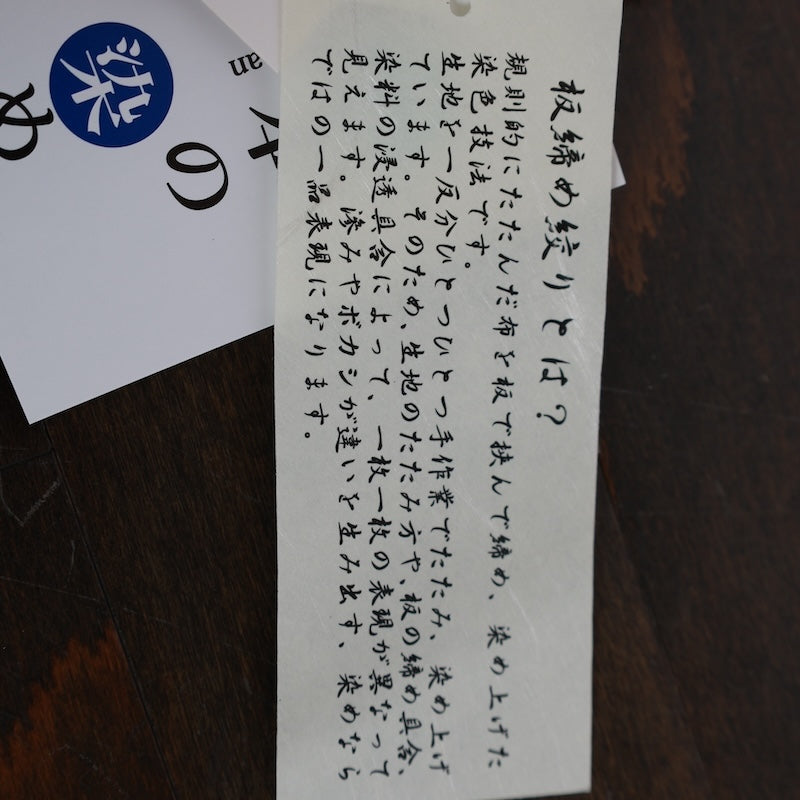 板締め絞りとは?
規則的にたたんだ布を板で挟んで締め、染め上げた
染色技法です。
生地を一反分ひとつひとつ手作業でたたみ、染め上げ
ています。そのため、生地のたたみ方や、板の締め具合、
染料の浸透具合によって、一枚一枚の表現が異なって
見えます。滲みやボカシが違いを生み出す、染めなら
ではの一品表現になります。
染
の
め
an